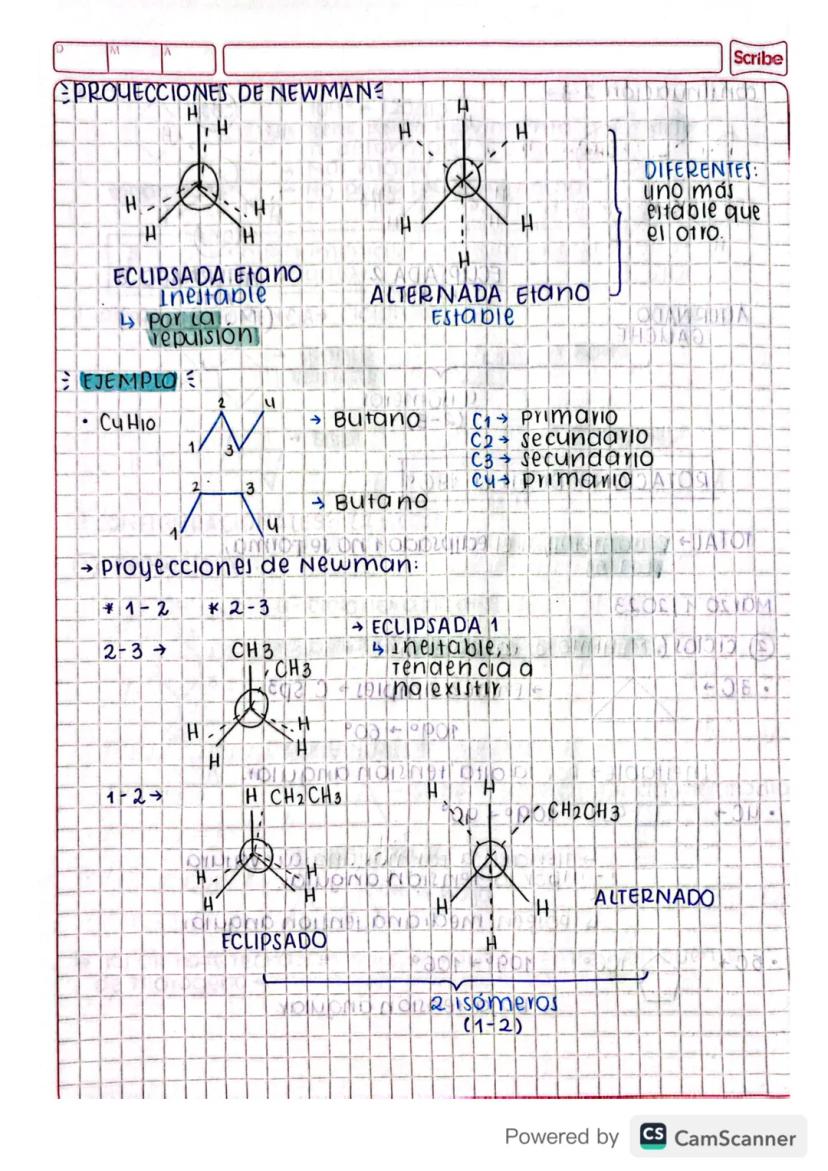 D M A
Scribe
PROYECCIONES DE NEWMAN
H H
H H
H H
H
H H
H H
H
DIFERENTES:
uno más
estable que
el otro.
ECLIPSADA Etano
Inestable
↳ por la
repulsión
ALTERNADA Etano
Estable
EJEMPLO
• C4H10
1 2 3 4
→ Butano
C1 → primario
C2 → secundario
C3 → secundario
C4 → primario
1 2 3 4
→ Butano
→ Proyecciones de Newman:
* 1-2 * 2-3
2-3 →
CH3
CH3
H H
H H
→ ECLIPSADA 1
↳ inestable,
tendencia a
no existir
1-2 →
H CH2CH3
H H
H H
ECLIPSADO
H H
CH2CH3
H H
H
ALTERNADO
2 isómeros
(1-2)
Powered by CS CamScanner